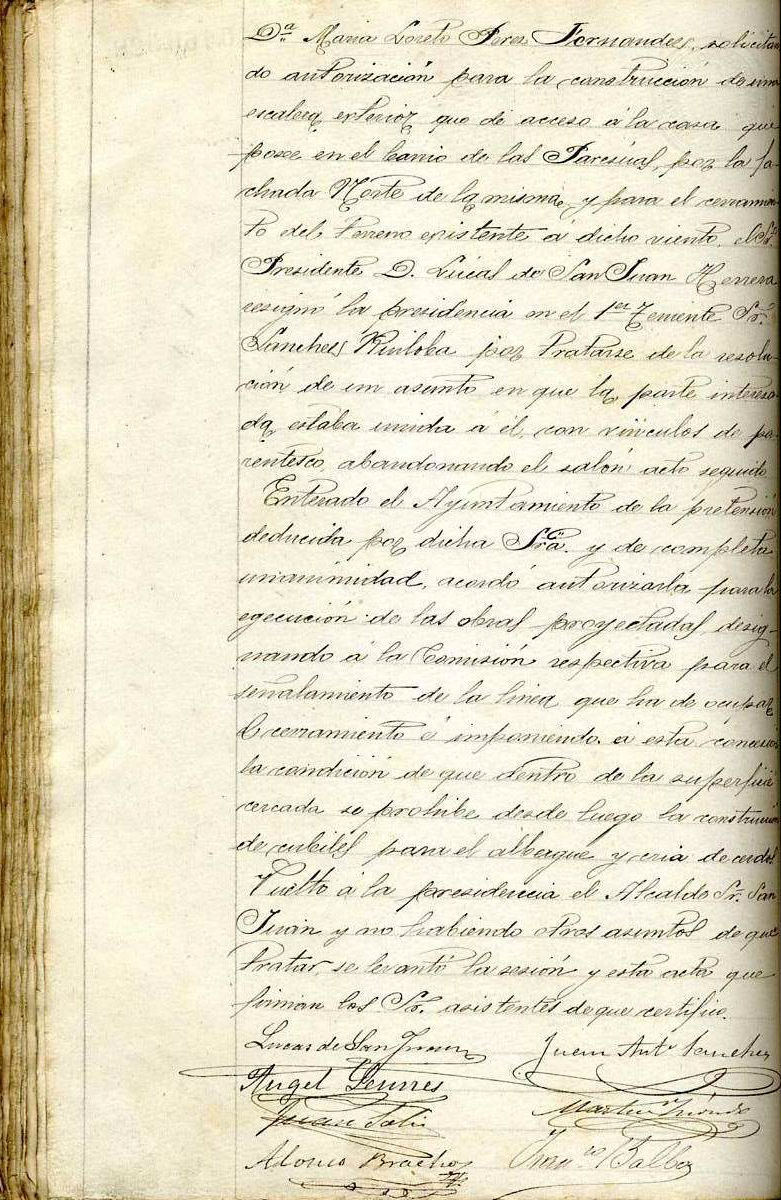 Dª Maria Loreto Perez Fernandez, solicitan
do autorización para la construcción de una
escalera exterior que dé acceso á la casa que
posee en el barrio de las Paresúas, por la fa-
chada Norte de la misma, y para el cerramien-
to del terreno existente á dicho viento, el Sr.
Presidente D. Lucas de San Juan Herrera
resignó la presidencia en el 1er Teniente Sr.
Sanchez Ruiloba por tratarse de la resolu-
ción de un asunto en que la parte interesa-
da estaba unida á él, con vinculos de pa-
rentesco, abandonando el salón acto seguido.
Enterado el Ayuntamiento de la pretensión
deducida por dicha Sra. y de completa
unanimidad, acordó autorizarla para la
egecución de las obras proyectadas, desig-
nando á la Comisión respectiva para el
señalamiento de la linea que ha de ocupar
el cerramiento é imponiendo á esta concesión
la condición de que dentro de la superficie
cercada se prohibe desde luego la construcción
de cubiles para el albergue y cria de cerdos.
Vuelto á la presidencia el Alcalde Sr. San
Juan y no habiendo otros asuntos de que
tratar se levantó la sesión y esta acta que
firman los Sres. asistentes de que certifico.
Lucas de San Juan Juan Antº Sanchez
Angel
Juan Solis Martin
Alonso Franco Balbas